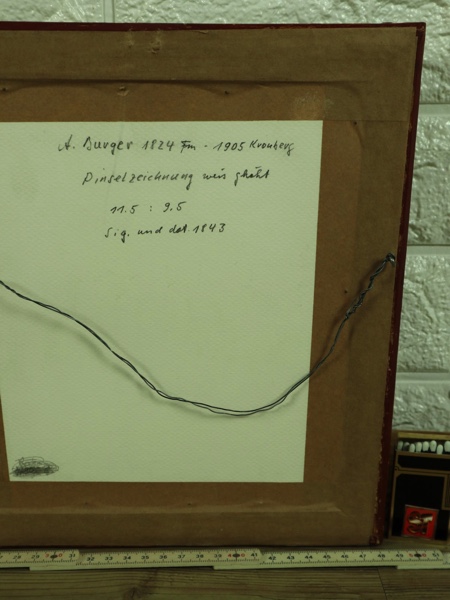 A. Burger 1824 Ffm - 1905 Kronberg
Pinselzeichnung weis gehöht
11.5 : 9.5
Sig. und dat. 1843